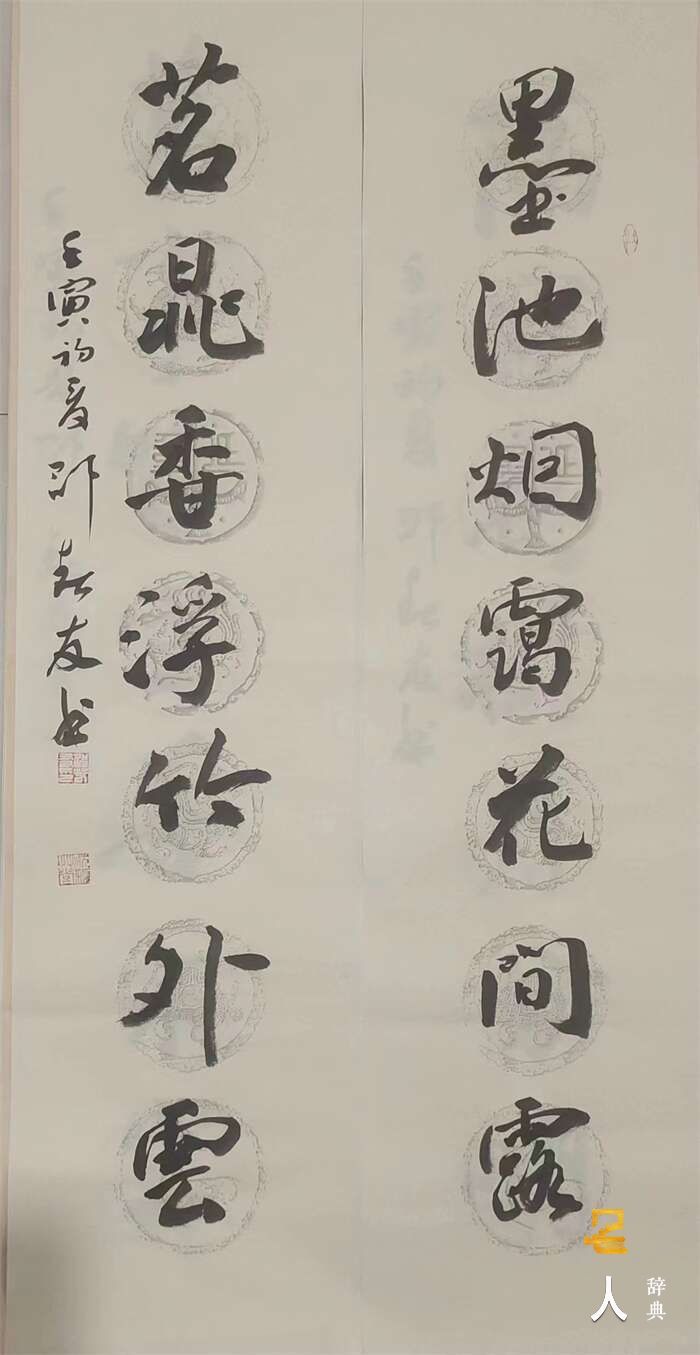 墨池烟靄花間露
茗鼎香浮竹外雲
壬寅初夏邵春友书
名人辞典